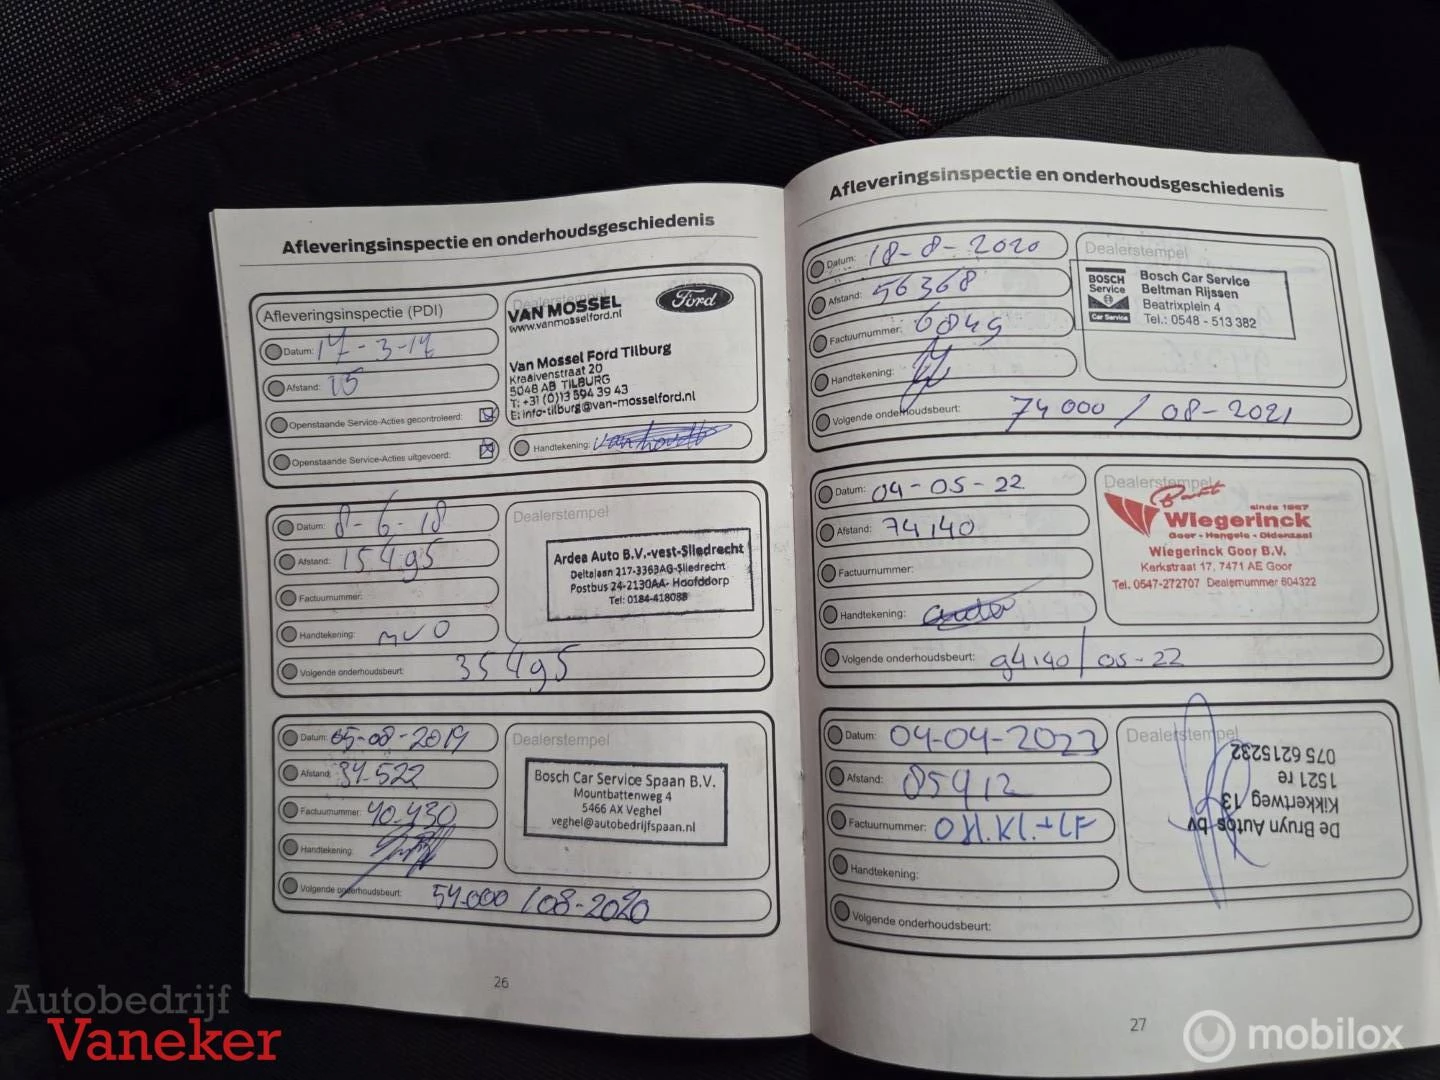 Afleveringsinspectie en onderhoudsgeschiedenis
Afleveringsinspectie (PDI)
Datum: 17-3-17
Afstand: 15
Openstaande Service-Acties gecontroleerd:
Openstaande Service-Acties uitgevoerd:
Dealerstempel
VAN MOSSEL
Ford
www.vanmosselford.nl
Van Mossel Ford Tilburg
Kraaivenstraat 20
5048 AB TILBURG
T: +31 (0)13 594 39 43
E: info-tilburg@van-mosselford.nl
Handtekening:
Datum: 8-6-18
Afstand: 15495
Factuurnummer:
Handtekening: MVO
Volgende onderhoudsbeurt: 35495
Dealerstempel
Ardea Auto B.V.-vest-Sliedrecht
Deltalaan 217-3363AG-Sliedrecht
Postbus 24-2130AA- Hoofddorp
Tel: 0184-418088
Datum: 05-08-2019
Afstand: 34.522
Factuurnummer: 40.430
Handtekening:
Volgende onderhoudsbeurt: 54.000 / 08-2020
Dealerstempel
Bosch Car Service Spaan B.V.
Mountbattenweg 4
5466 AX Veghel
veghel@autobedrijfspaan.nl
26
Afleveringsinspectie en onderhoudsgeschiedenis
Datum: 18-8-2020
Afstand: 56368
Factuurnummer: 6849
Handtekening:
Volgende onderhoudsbeurt: 74000 / 08-2021
Dealerstempel
BOSCH
Service
Car Service
Bosch Car Service
Beltman Rijssen
Beatrixplein 4
Tel.: 0548 - 513 382
Datum: 04-05-22
Afstand: 74140
Factuurnummer:
Handtekening:
Volgende onderhoudsbeurt: 94140 / 05-22
Dealerstempel
sinds 1967
Wiegerinck
Goor - Hengelo - Oldenzaal
Wiegerinck Goor B.V.
Kerkstraat 17, 7471 AE Goor
Tel. 0547-272707 Dealernummer 604322
Datum: 04-04-2023
Afstand: 85912
Factuurnummer: OH.Kl.+LF
Handtekening:
Volgende onderhoudsbeurt:
Dealerstempel
De Bruyn Autos bv
Kikkertweg 13
1521 re
075 6215232
27
Autobedrijf
Vaneker
mobilox